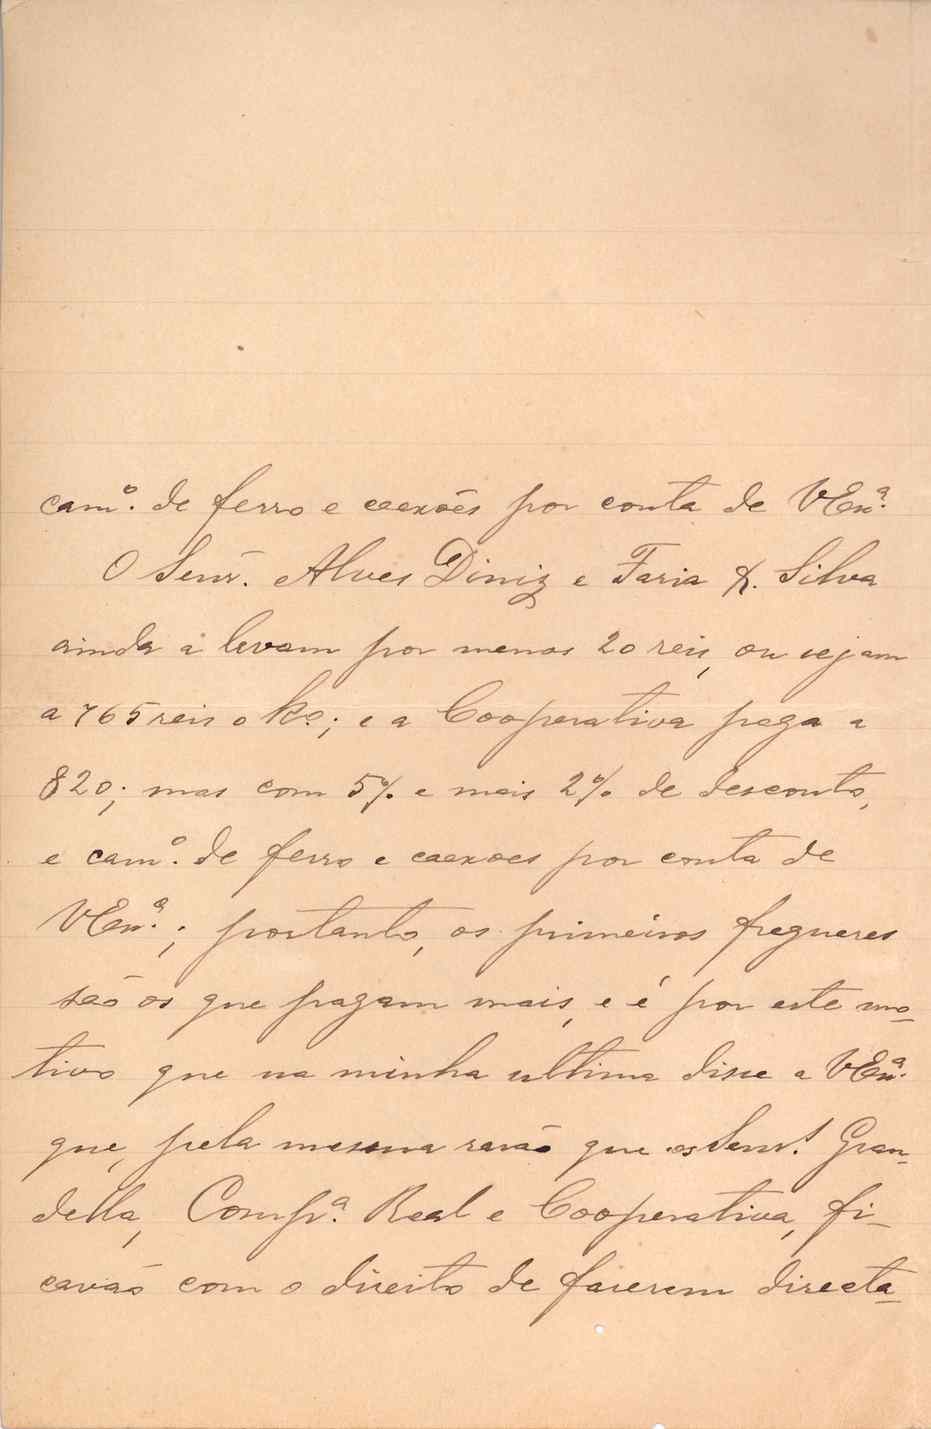 camº. de ferro e caexões por conta de VExª.
O Senr. Alves Diniz e Faria & Silva
ainda a levam por menos 20 reis, ou sejam
a 765 reis o kº.; e a Cooperativa paga a
820; mas com 5% e mais 2% de desconto,
e camº. de ferro e caexoes por conta de
VExª.; portanto, os primeiros freguezes
são os que pagam mais, e é por este mo-
tivo que na minha ultima disse a VExª.
que, pela mesma razão que os Senrs. Gran-
della, Compª. Real e Cooperativa, fi-
cavão com o direito de fazerem directa-